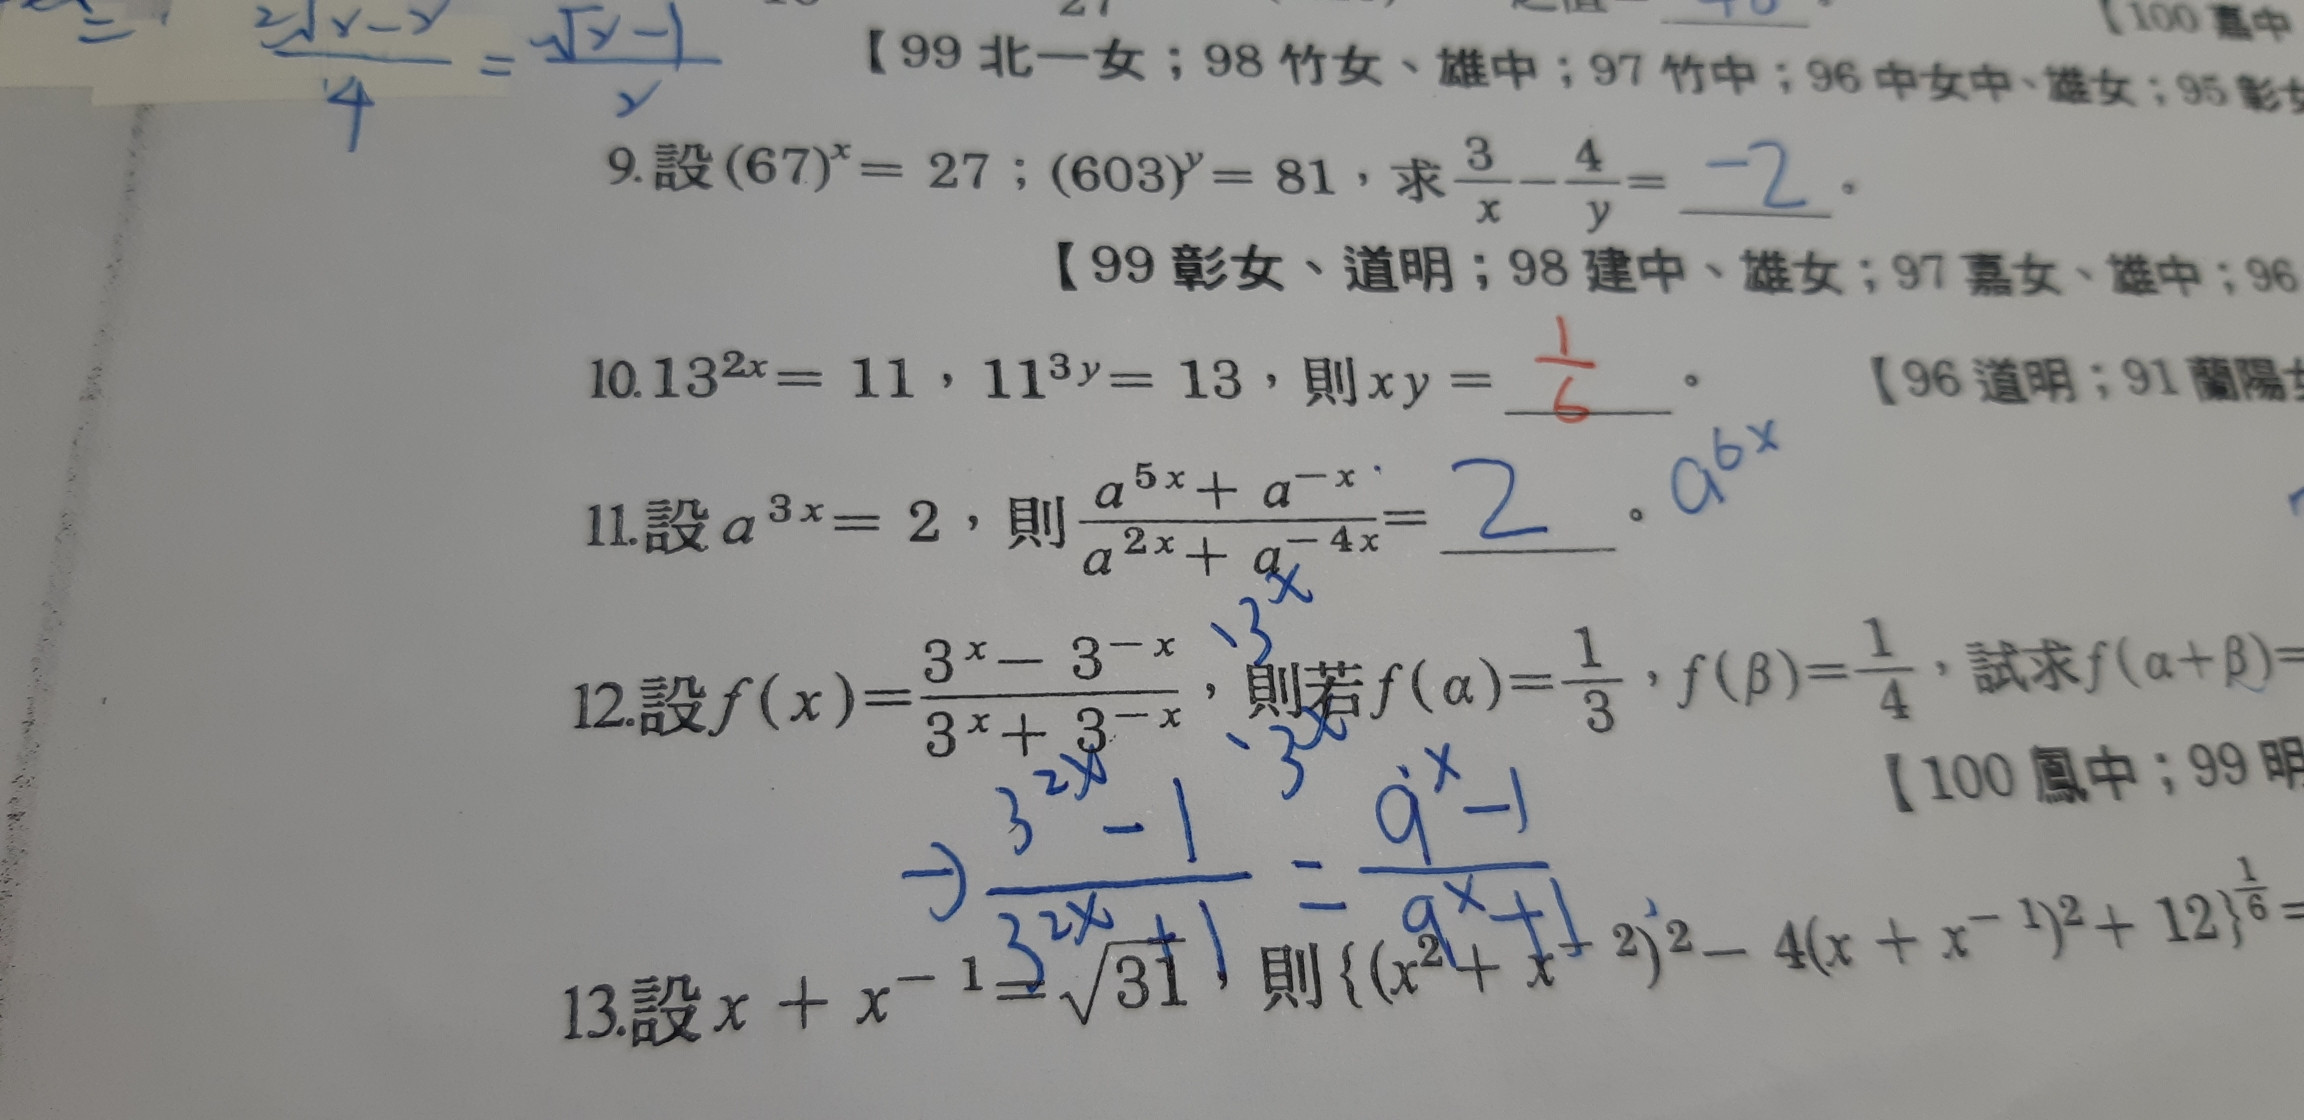 = 2√x-2/4 = √x-1/2
【100 嘉中
【99 北一女；98 竹女、雄中；97 竹中；96 中女中、雄女；95 彰女
9.設(67)^x = 27；(603)^y = 81，求 3/x − 4/y = -2。
【99 彰女、道明；98 建中、雄女；97 嘉女、雄中；96
10. 13^{2x} = 11，11^{3y} = 13，則 xy = 1/6。 【96 道明；91 蘭陽女
11.設 a^{3x} = 2，則 (a^{5x} + a^{-x})/(a^{2x} + a^{-4x}) = 2。 a^{6x}
·3^x
12.設 f(x) = (3^x − 3^{-x})/(3^x + 3^{-x})，則若 f(α) = 1/3，f(β) = 1/4，試求 f(α+β) =
·3^x
【100 鳳中；99 明
→ (3^{2x} - 1)/(3^{2x} + 1) = (9^x - 1)/(9^x + 1)
13.設 x + x^{-1} = √31，則{(x^2 + x^{-2})^2 − 4(x + x^{-1})^2 + 12}^{1/6} =